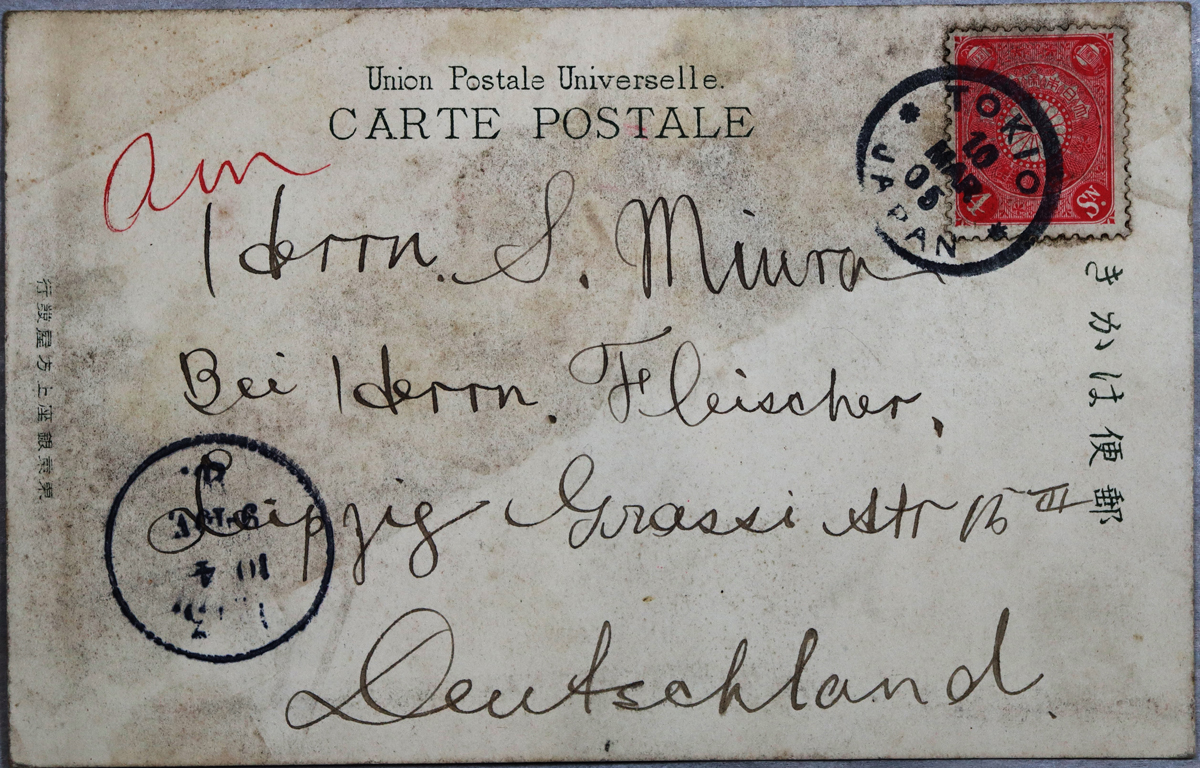 Union Postale Universelle.
CARTE POSTALE
TOKIO
10
MAR
05
JAPAN
Am
Herrn. S. Miura
Bei Herrn. Fleischer,
Leipzig Grassi Str 15 II
Deutschland.
きかは便郵
行發屋方上座銀京東